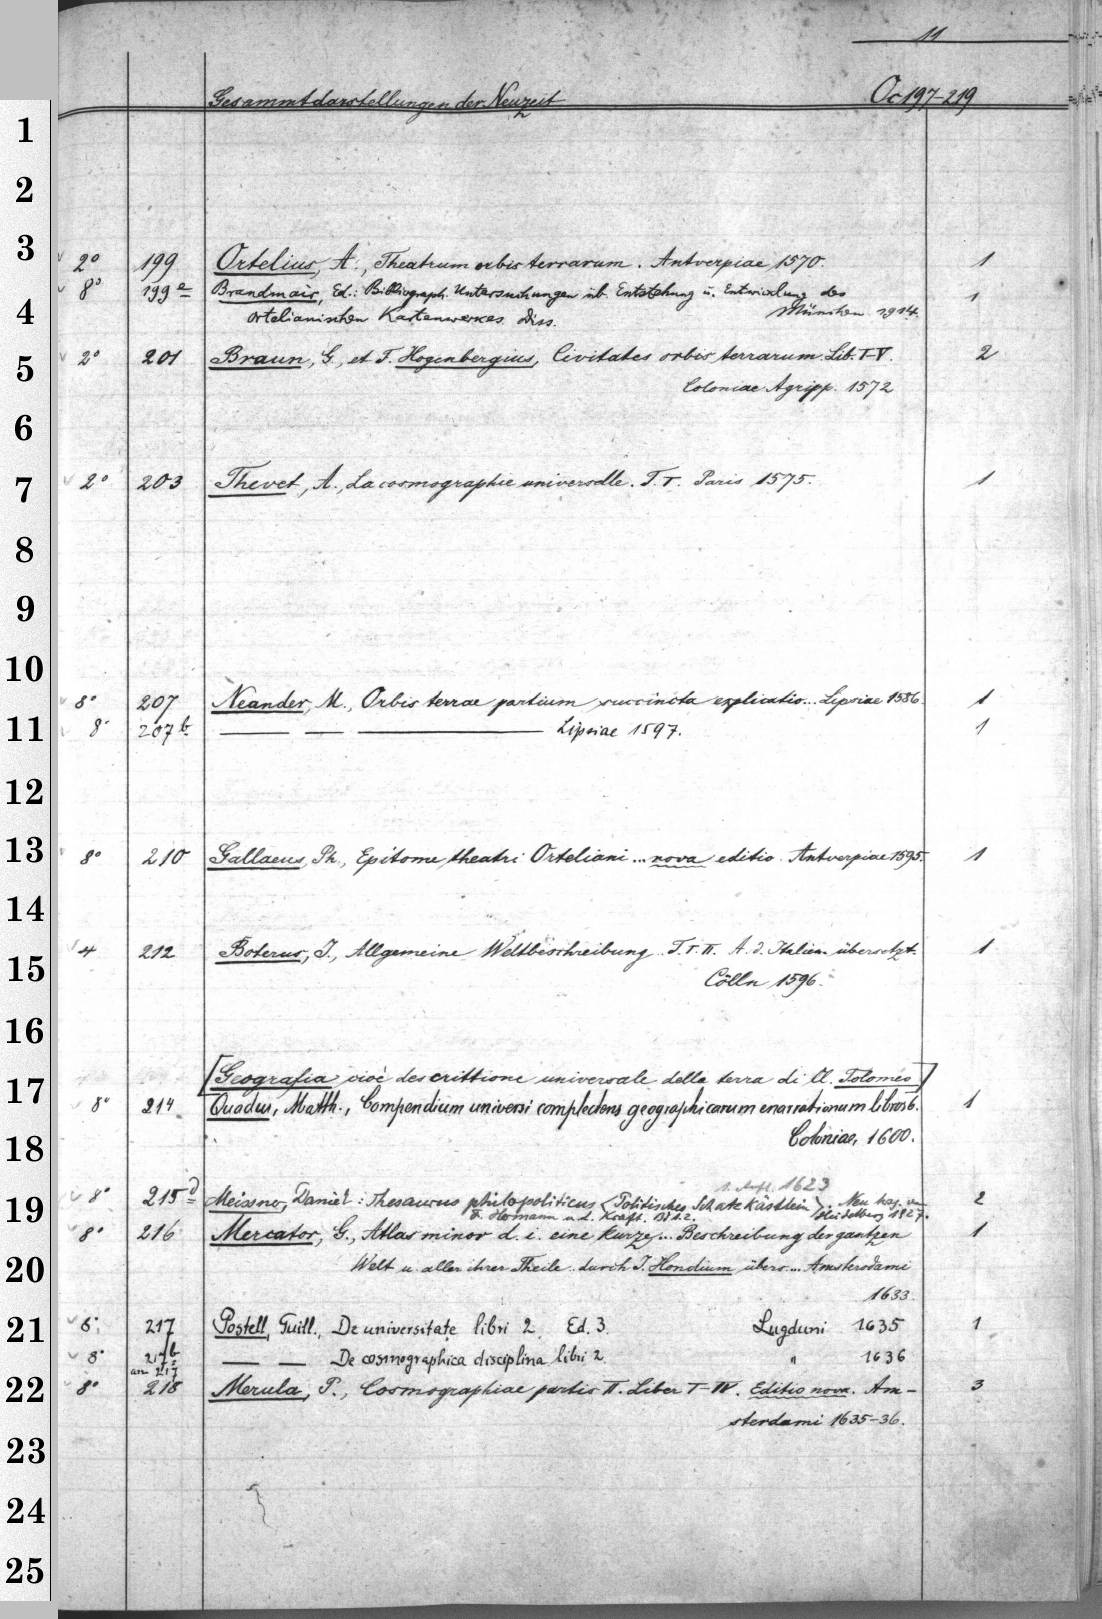 11
Gesammtdarstellungen der Neuzeit Oc 197-219
1
2
3
2° 199 Ortelius, A., Theatrum orbis terrarum. Antverpiae 1570. 1
8° 199a Brandmair, Ed.: Bibliograph. Untersuchungen üb. Entstehung u. Entwicklung des 1
4
Ortelianischen Kartenwerkes. Diss. München 1914.
2° 201 Braun, G., et F. Hogenbergius, Civitates orbis terrarum. Lib. I-V. 2
5
Coloniae Agripp. 1572
6
7
2° 203 Thevet, A., La cosmographie universelle. T. I. Paris 1575. 1
8
9
10
8° 207 Neander, M., Orbis terrae partium succincta explicatio... Lipsiae 1586. 1
11
8° 207b ——— —— ——— Lipsiae 1597. 1
12
13
8° 210 Gallaeus, Ph., Epitome theatri Orteliani ... nova editio. Antverpiae 1595. 1
14
4 212 Boterus, J., Allgemeine Weltbeschreibung. T. I. II. A. d. Italien. übersetzt. 1
15
Cölln 1596.
16
[Geografia cioè descrittione universale della terra di Cl. Tolomeo]
17
8° 214 Quadus, Matth., Compendium universi complectens geographicarum enarrationum libros 6. 1
18
Coloniae, 1600.
1. Aufl. 1623
8° 215d Meissner, Daniel: Thesaurus philopoliticus <Politisches Schatzkästlein>. Neu hsg. von 2
19
F. Hermann u. L. Kraft. Bd 1.2. Heidelberg 1927.
8° 216 Mercator, G., Atlas minor d. i. eine kurze... Beschreibung der gantzen 1
20
Welt u. aller ihrer Theile durch J. Hondium übers... Amsterodami
1633.
21
8° 217 Postell, Guill., De universitate libri 2. Ed. 3. Lugduni 1635 1
8° 217b —— —— De cosmographica disciplina libri 2. " 1636
an 217
22
8° 218 Merula, P., Cosmographiae partis II. Liber I-IV. Editio nova. Am- 3
sterdami 1635-36.
23
24
25